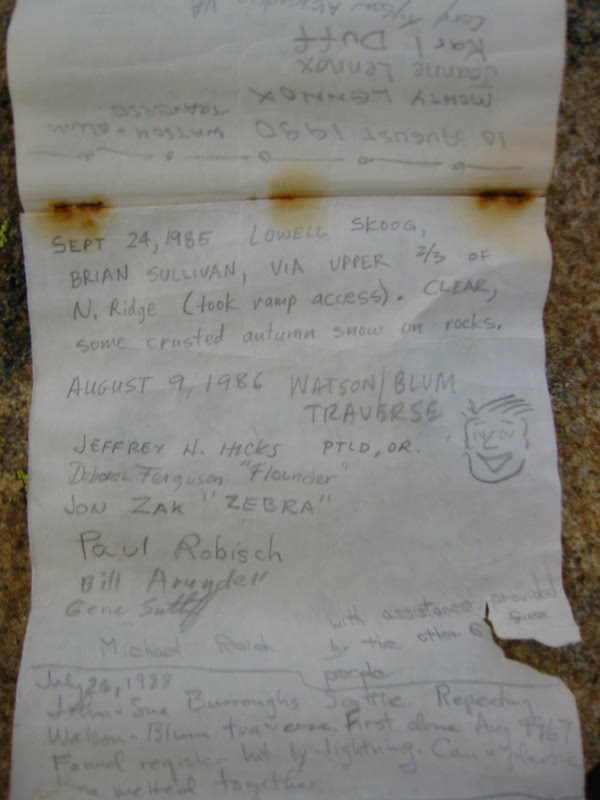 10 AUGUST 1990 WATSON - BLUM
TRAVERSE
MONTY LENNOX
Jeanne Lennox
Karl Duff
SEPT 24, 1985 LOWELL SKOOG,
BRIAN SULLIVAN, VIA UPPER 2/3 OF
N. Ridge (took ramp access). CLEAR,
some crusted autumn snow on rocks.
AUGUST 9, 1986 WATSON/BLUM
TRAVERSE
JEFFREY H. HICKS PTLD, OR.
Deborah Ferguson "Flounder"
JON ZAK "ZEBRA"
Paul Robisch
Bill Arundell
Gene
Michael Reich
with assistance provided
by the other 6
people
July 26, 1988
John + Sue Burroughs Seattle Repeating
Watson - Blum traverse. First done Aug 1967
Found register hit by lightning. Can + plastic
melted together